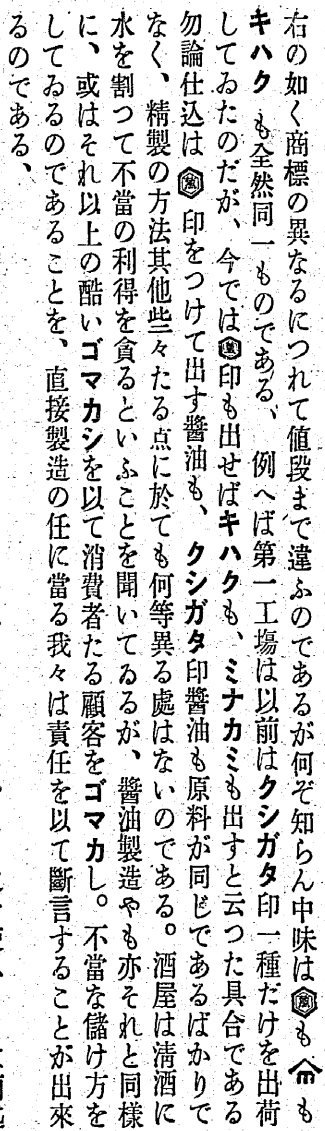 右の如く商標の異なるにつれて値段まで違ふのであるが何ぞ知らん中味は萬も も
キハクも全然同一ものである、例へば第一工塲は以前はクシガタ印一種だけを出荷
してゐたのだが、今では萬印も出せばキハクも、ミナカミも出すと云つた具合である
勿論仕込は萬印をつけて出す醬油も、クシガタ印醬油も原料が同じであるばかりで
なく、精製の方法其他些々たる点に於ても何等異る處はないのである。酒屋は淸酒に
水を割つて不當の利得を貪るといふことを聞いてゐるが、醬油製造やも亦それと同樣
に、或はそれ以上の酷いゴマカシを以て消費者たる顧客をゴマカし。不當な儲け方を
してゐるのであることを、直接製造の任に當る我々は責任を以て斷言することが出來
るのである、